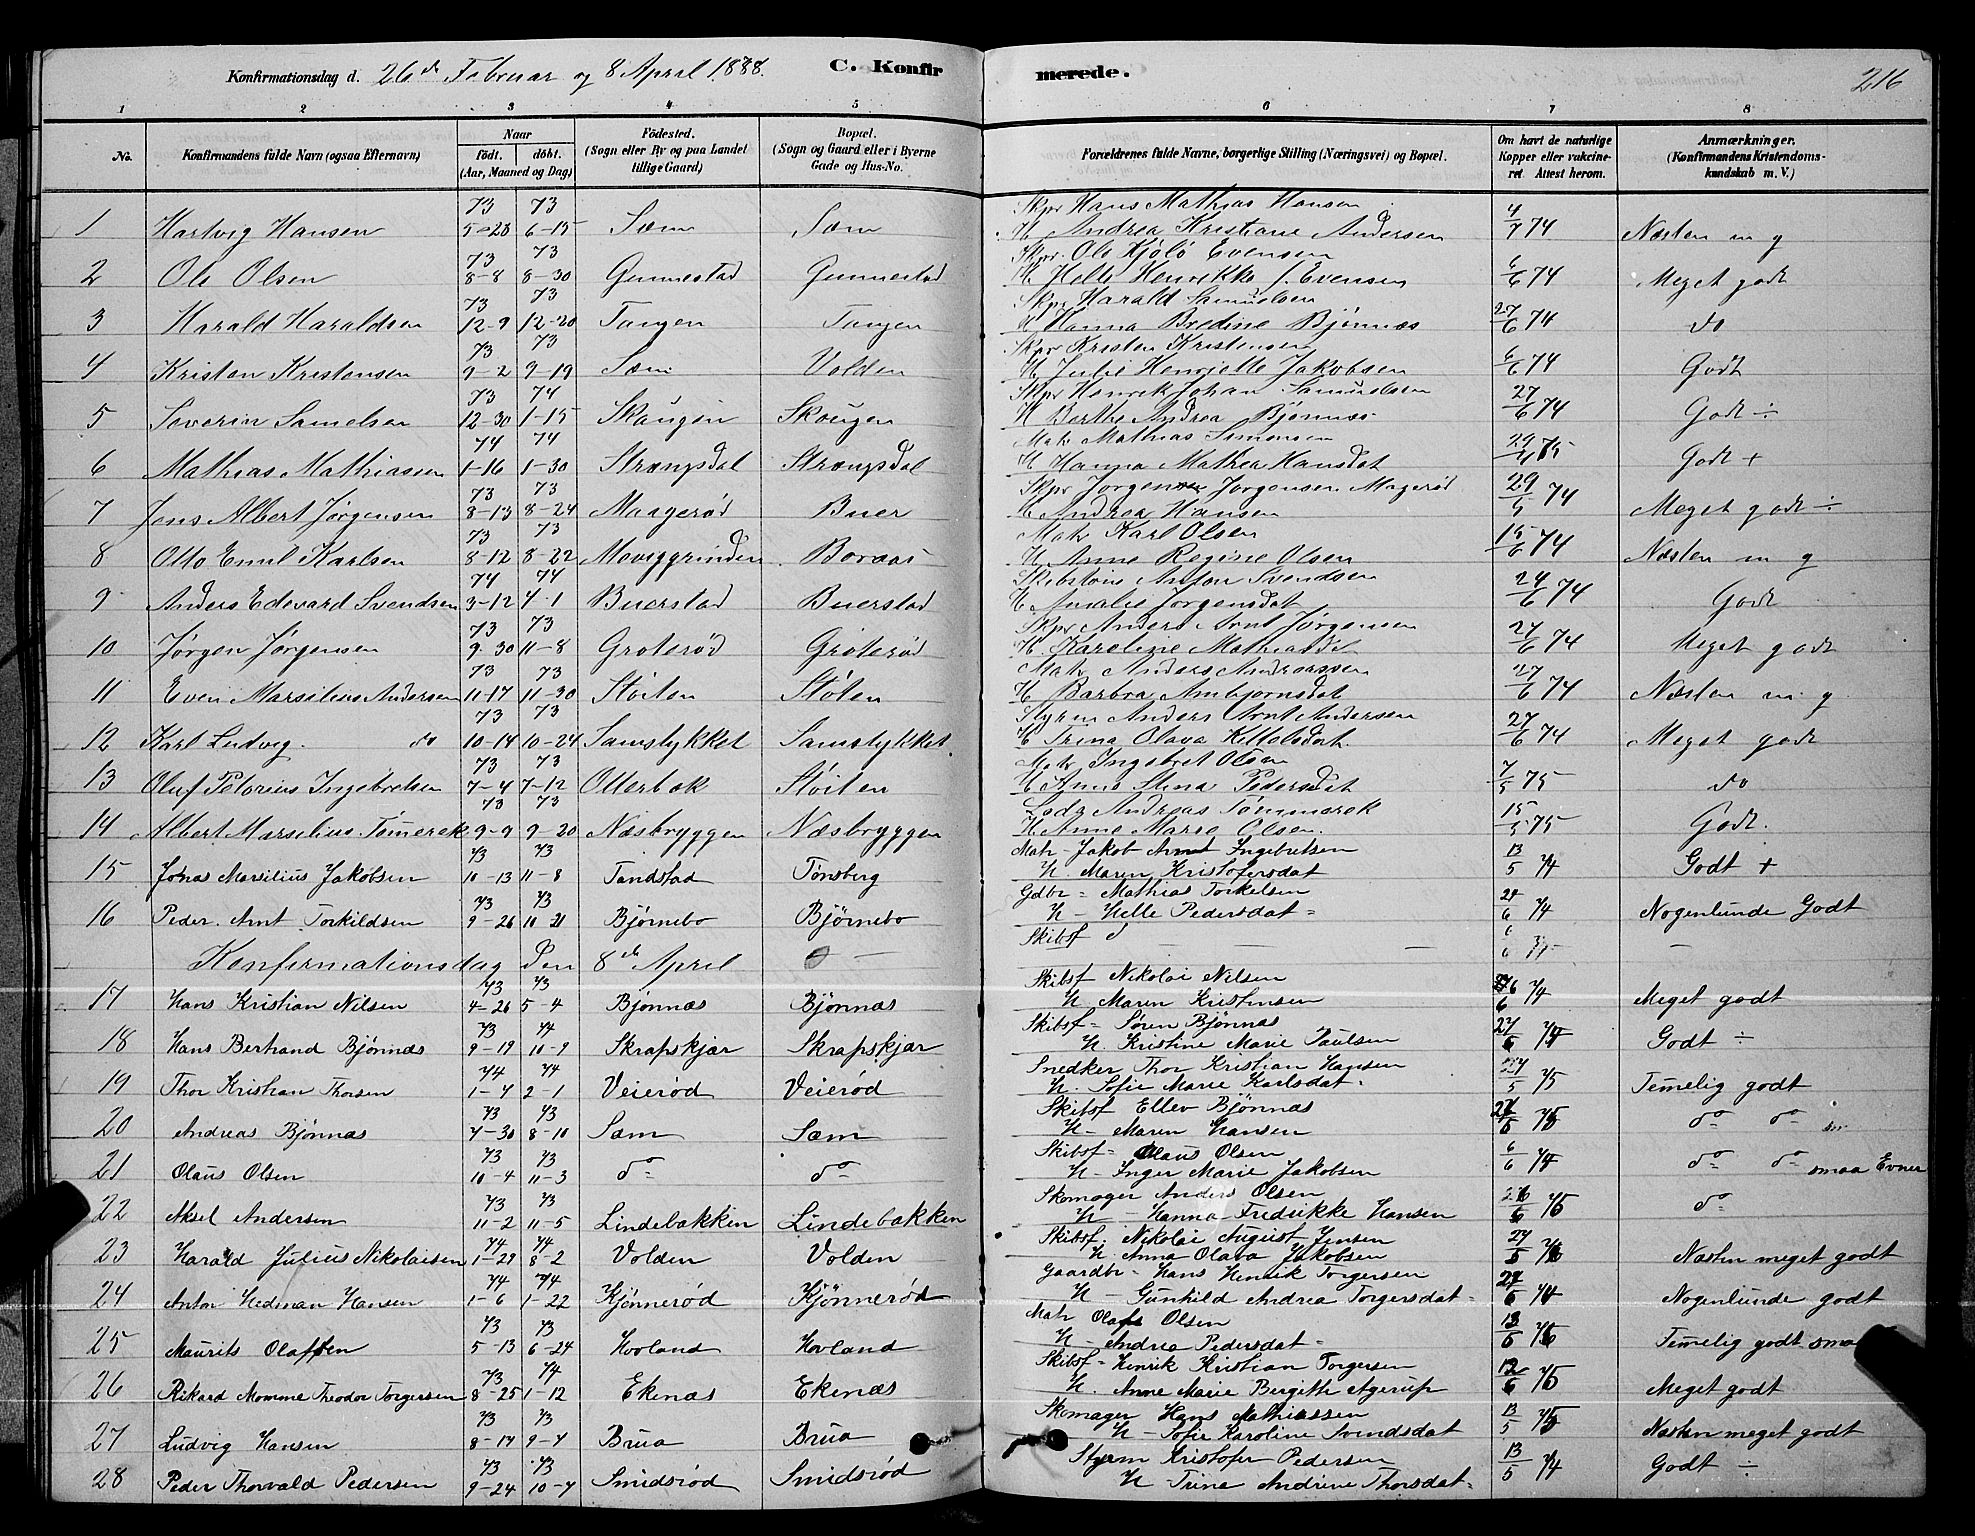 Konfirmationsdag d. 26de Februar og 8 April 1888. C. Konfirmerede. 216
1 2 3 4 5 6 7 8
No. Konfirmandens fulde Navn (ogsaa Efternavn) Naar født. døbt. (Aar, Maaned og Dag) Födested. (Sogn eller By og paa Landet tillige Gaard) Bopæl. (Sogn og Gaard eller i Byerne Gade og Hus-No. Forældrenes fulde Navne, borgerlige Stilling (Næringsvei) og Bopæl. Om havt de naturlige Kopper eller vaccineret. Attest herom. Anmærkninger. (Konfirmandens Kristendomskundskab m. V.)
1 Hartvig Hansen 73 5-28 73 6-15 Sæm Sæm Skpr Hans Mathias Hansen H Andrea Kristiane Andersen 4/7 74 Næsten m g
2 Ole Olsen 73 8-8 73 8-30 Gunnestad Gunnestad Skpr. Ole Kjölö Evensen H Helle Henrikke J. Evensen 6/6 74 Meget godt
3 Harald Haraldsen 73 12-9 73 12-20 Tangen Tangen Skpr Harald Samuelsen H Hanna Bredine Bjönnæs 27/6 74 do
4 Kristen Kristensen 73 9-2 73 9-19 Sæm Volden Skpr Kristen Kristensen H Julie Henriette Jakobsen 6/6 74 Godt
5 Severin Samelsen 73 12-30 74 1-15 Skaugen Skougen Skpr Henrik Johan Samuelsen H Berthe Andrea Bjönnæs 27/6 74 Godt ÷
6 Mathias Mathiassen 74 1-16 74 1-30 Strængsdal Strængsdal Matr Mathias Simensen H Hanna Mathea Hansdat 75 Godt +
7 Jens Albert Jørgensen 73 8-13 73 8-24 Maagerød Buer Skpr Jørgen Jørgensen Magerød H Andrea Hansen 29/5 74 Meget godt ÷
8 Otto Emil Karlsen 73 8-12 73 8-22 Moviggrinden Boraas Matr Karl Olsen H Anne Regine Olsen 15/6 74 Næsten m g
9 Anders Edevard Svendsen 74 3-12 74 4-1 Buerstad Buerstad Anton Svendsen H Amalie Jørgensdat 24/6 74 Godt
10 Jørgen Jørgensen 73 9-30 73 11-8 Groterød Gröterød Skpr Anders Arnt Jørgensen H. Karoline Mathiasdt 27/6 74 Meget godt
11 Even Marselius Andersen 73 11-17 73 11-30 Støiten Støten Matr Anders Andreassen H Barbra Ambjørnsdat 27/6 74 Næsten m. g
12 Karl Ludvig. do 73 10-14 73 10-24 Samstykket Samstykket. Styrm Anders Arnt Andersen H Trina Olava Kittelsdat. 27/6 74 Meget godt
13 Oluf Petorius Ingebretsen 73 7-4 73 7-12 Otterbæk Støiten Matr Ingebret Olsen H Anne Stina Pedersdat 7/5 75 do
14 Albert Marselius Tømerek 73 9-9 73 9-20 Næsbryggen Næsbryggen Lods Andreas Tømmerek H Anne Marie Olsen. 15/5 75 Godt.
15 Jonas Marsilius Jakobsen 73 10-13 73 11-8 Tandstad Tønsberg Matr Jakob Arnt Ingebretsen H. Maren Kristofersdat 13/5 74 Godt +
16 Peder. Arnt Torkildsen 73 9-26 73 10 21 Bjørnebo Bjørnebo Gdbr = Mathias Torkelsen H - Helle Pedersdat = 24/6 74 Nogenlunde Godt
Konfirmationsdag Den 8de April Skibsf
17 Hans Kristian Nilsen 73 4-26 73 5-4 Bjönnæs Bjönnæs Skibsf Nikolai Nilsen H Maren Kristensen 6 74 Meget godt
18 Hans Bertrand Bjönnæs 73 9-19 74 10-9 Skrapskjær Skrapskjær Skibsf = Søren Bjönnæs H. Kristine Marie Paulsen 27/6 74 Godt ÷
19 Thor Kristian Thorsen 74 1-4 74 2-1 Veierød Veierød Snedker Thor Kristian Hansen H. Sofie Marie Karlsdat = 27/5 75 Temelig godt
20 Andreas Bjönnæs 73 7-30 73 8-10 Sæm Sæm Skibsf Ellev Bjönnæs H - Maren Hansen 75 do do sm
21 Olaus Olsen 73 10-4 73 11-3 do do Skibsf = Olaus Olsen H - Inger Marie Jakobsen 6/6 74 do do smaa Evner
22 Aksel Andersen 73 11-2 73 11-5 Lindebakken Lindebakken Skomager Anders Olsen H - Hanna Fredrikke Hansen 75 do
23 Harald Julius Nikolaisen 74 1-29 74 8-2 Volden Volden Skibsf. Nikolai August Jensen H. Anna Olava Jakobsen 27/5 Næsten meget godt
24 Anton Hedman Hansen 74 1-6 74 1-22 Kjönnerød Kjönnerød Gaardbr - Hans Henrik Torgersen H - Gunhild Andrea Torgersdat = 74 Nogenlunde godt
25 Maurits Olafsen 73 5-13 73 6-24 Hovland Hovland Matr Olafs Olsen H - Andrea Pedersdat = Temelig godt sma
26 Rikard Momme Theodor Torgersen 73 8-25 74 1-12 Ekenæs Ekenæs Skibsf = Henrik Kristian Torgersen H. Anne Marie Bergithe Agerup 75 Meget godt
27 Ludvig Hansen 73 8-14 73 9-7 Brua Brua Skomager Hans Mathiassen H - Sofie Karoline Svendsdat 13/5 75 Næsten meget godt
28 Peder Thorvald Pedersen 73 9-24 73 10-7 Smidsrød Smidsrød Styrm Kristofer Pedersen H Trine Andrine Thorsdat = 13/5 74 Godt ÷